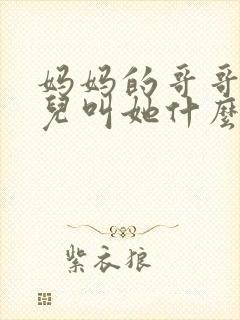 妈妈的哥哥
兒叫她什麼
紫衣狼